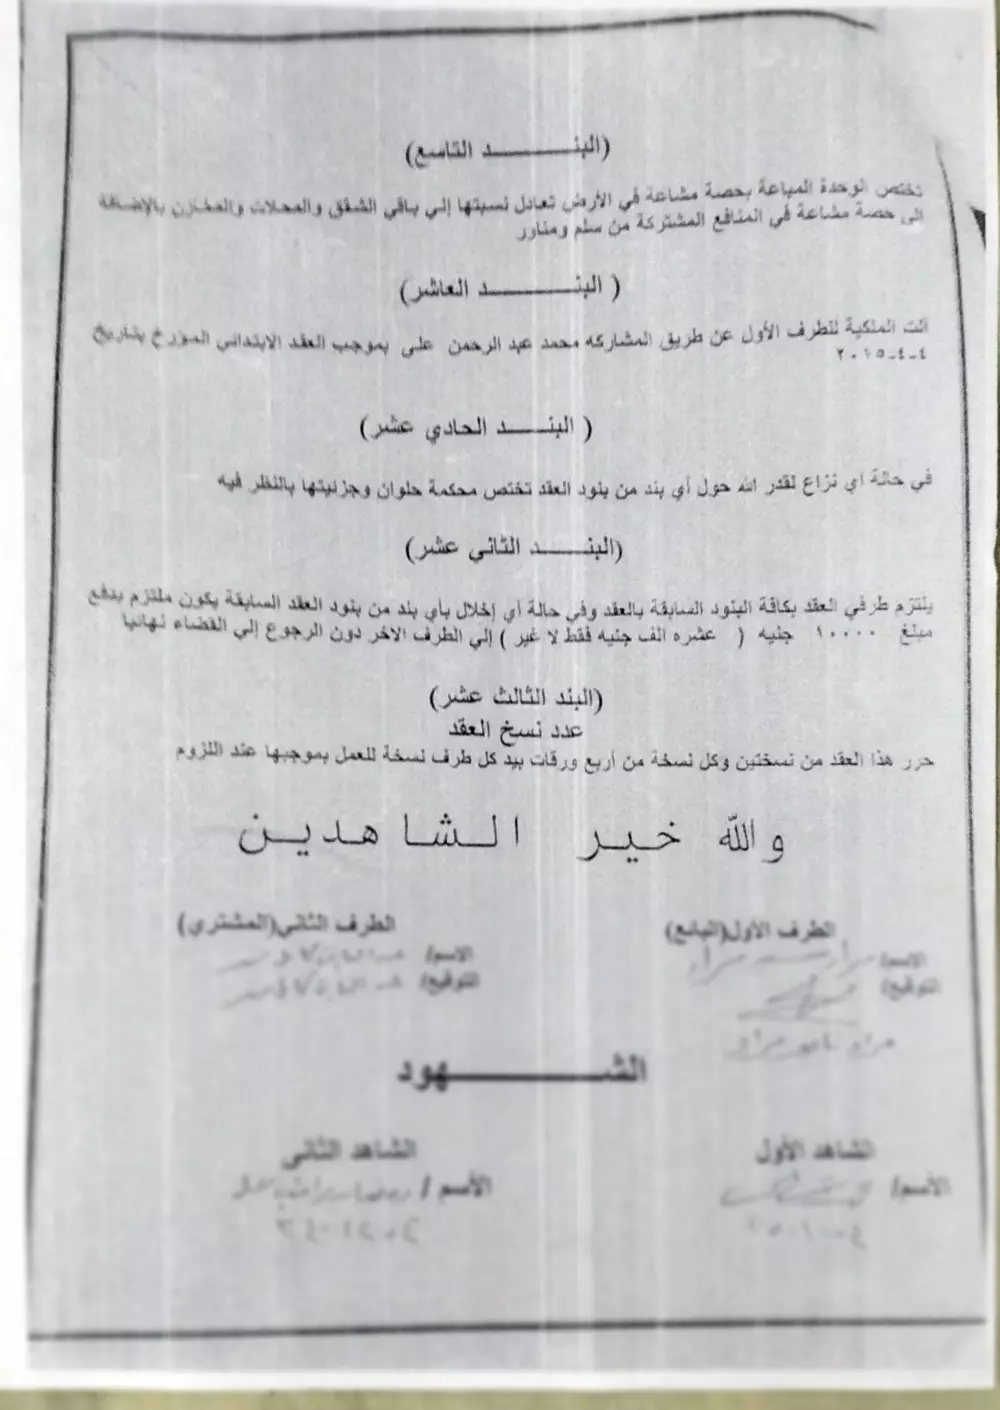 (البنـــــــــد التاسع)
تختص الوحدة المباعة بحصة مشاعة في الأرض تعادل نسبتها إلي باقي الشقق والمحلات والمخازن بالإضافة
الى حصة مشاعة في المنافع المشتركة من سلم ومناور
( البنـــــــــد العاشر)
آلت الملكية للطرف الأول عن طريق المشاركه محمد عبد الرحمن على بموجب العقد الابتدائي المؤرخ بتاريخ
٤-٤-٢٠١٥
( البنـــــد الحادي عشر)
في حالة اي نزاع لقدر الله حول أي بند من بنود العقد تختص محكمة حلوان وجزئيتها بالنظر فيه
(البنـــــد الثاني عشر)
يلتزم طرفي العقد بكافة البنود السابقة بالعقد وفي حالة أي إخلال بأي بند من بنود العقد السابقة يكون ملتزم بدفع
مبلغ ١٠٠٠٠ جنيه ( عشره الف جنيه فقط لا غير ) إلي الطرف الاخر دون الرجوع إلي القضاء نهائيا
(البند الثالث عشر)
عدد نسخ العقد
حرر هذا العقد من نسختين وكل نسخة من أربع ورقات بيد كل طرف نسخة للعمل بموجبها عند اللزوم
والله خير الشاهدين
الطرف الأول(البائع)
الاسم/
التوقيع/
الطرف الثاني(المشتري)
الاسم/
التوقيع/
الشـــــــــهود
الشاهد الأول
الأسم/
الشاهد الثانى
الأسم /